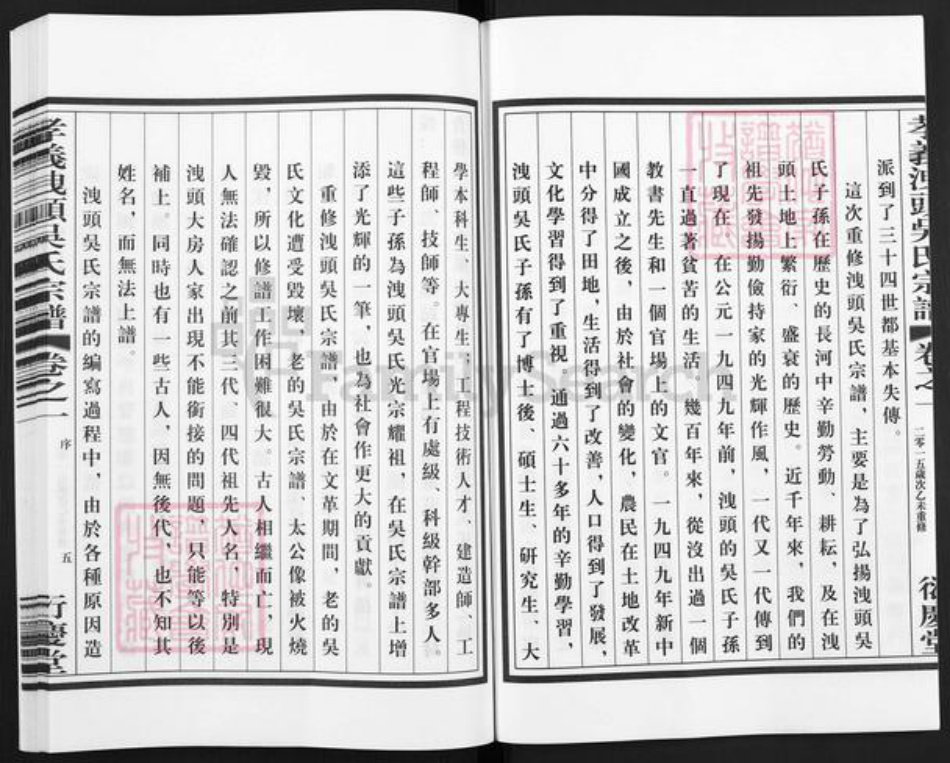 派到了三十四世都基本失傳。
這次重修洩頭吳氏宗譜，主要是為了弘揚洩頭吳
氏子孫在歷史的長河中辛勤勞動、耕耘，及在洩
頭土地上繁衍、盛衰的歷史。近千年來，我們的
祖先發揚勤儉持家的光輝作風，一代又一代傳到
了現在。在公元一九四九年前，洩頭的吳氏子孫
一直過著貧苦的生活。幾百年來，從沒出過一個
教書先生和一個官場上的文官。一九四九年新中
國成立之後，由於社會的變化，農民在土地改革
中分得了田地，生活得到了改善，人口得到了發展，
文化學習得到了重視。通過六十多年的辛勤學習，
洩頭吳氏子孫有了博士後、碩士生、研究生、大
學本科生、大專生；工程技術人才、建造師、工
程師、技師等。在官場上有處級、科級幹部多人。
這些子孫為洩頭吳氏光宗耀祖，在吳氏宗譜上增
添了光輝的一筆，也為社會作更大的貢獻。
重修洩頭吳氏宗譜，由於在文革期間，老的吳
氏文化遭受毀壞，老的吳氏宗譜、太公像被火燒
毀，所以修譜工作困難很大。古人相繼而亡，現
人無法確認之前其三代、四代祖先人名，特別是
洩頭大房人家出現不能銜接的問題，只能等以後
補上。同時也有一些古人，因無後代，也不知其
姓名，而無法上譜。
洩頭吳氏宗譜的編寫過程中，由於各種原因造
孝義洩頭吳氏宗譜
卷之一
序
五
衍慶堂
二零一五歲次乙未重修
衍慶堂
FamilySearch